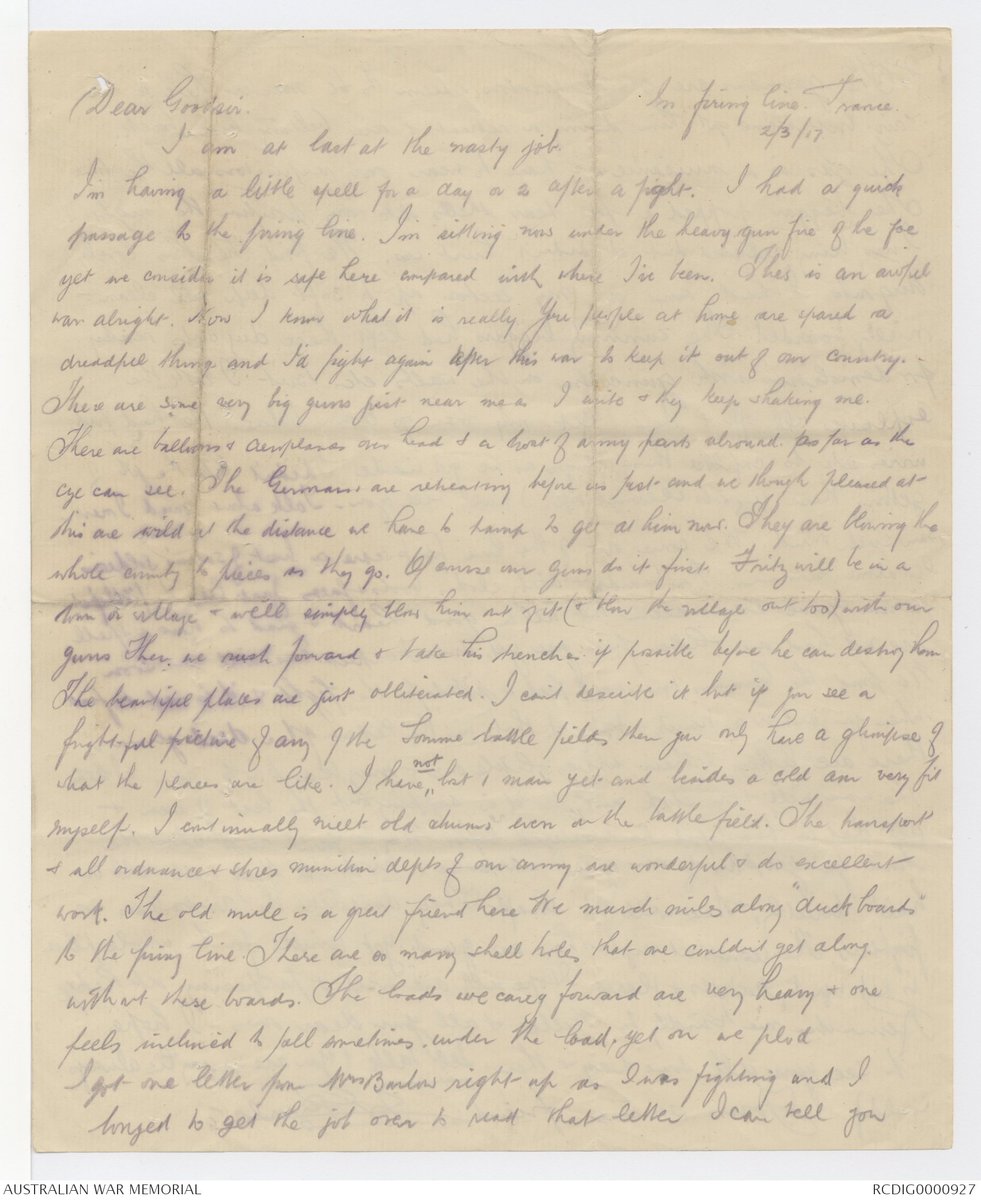 In firing line. France.
2/3/17
Dear Goodsir.
I am at last at the nasty job.
I'm having a little spell for a day or 2 after a fight. I had a quick
passage to the firing line. I'm sitting now under the heavy gun fire of the foe
yet we consider it is safe here compared with where I've been. This is an awful
war alright. Now I know what it is really. You people at home are spared a
dreadful thing and I'd fight again after this war to keep it out of our country.
There are some very big guns just near me as I write & they keep shaking me.
There are balloons & aeroplanes over head & a host of army parts abround as far as the
eye can see. The Germans are retreating before us fast and we though pleased at
this are wild at the distance we have to tramp to get at him now. They are blowing the
whole county to pieces as they go. Of course our guns do it first. Fritz will be in a
town or village & we'll simply blow him out of it (& blow the village out too) with our
guns Then we rush forward & take his trenches if possible before he can destroy them
The beautiful places are just obliterated. I can't describe it but if you see a
frightful picture of any of the Somme battle fields then you only have a glimpse of
what the places are like. I have not lost 1 man yet and besides a cold am very fit
myself. I continually meet old chums even on the battlefield. The transport
& all ordnance & stores munition depts of our army are wonderful & do excellent
work. The old mule is a great friend here We march miles along "duck boards"
to the firing line There are so many shell holes that one couldn't get along
without these boards. The loads we carry forward are very heavy & one
feels inclined to fall sometimes under the load, yet on we plod
I got one letter from Mrs Barlow right up as I was fighting and I
longed to get the job over to read that letter I can tell you
AUSTRALIAN WAR MEMORIAL
RCDIG0000927